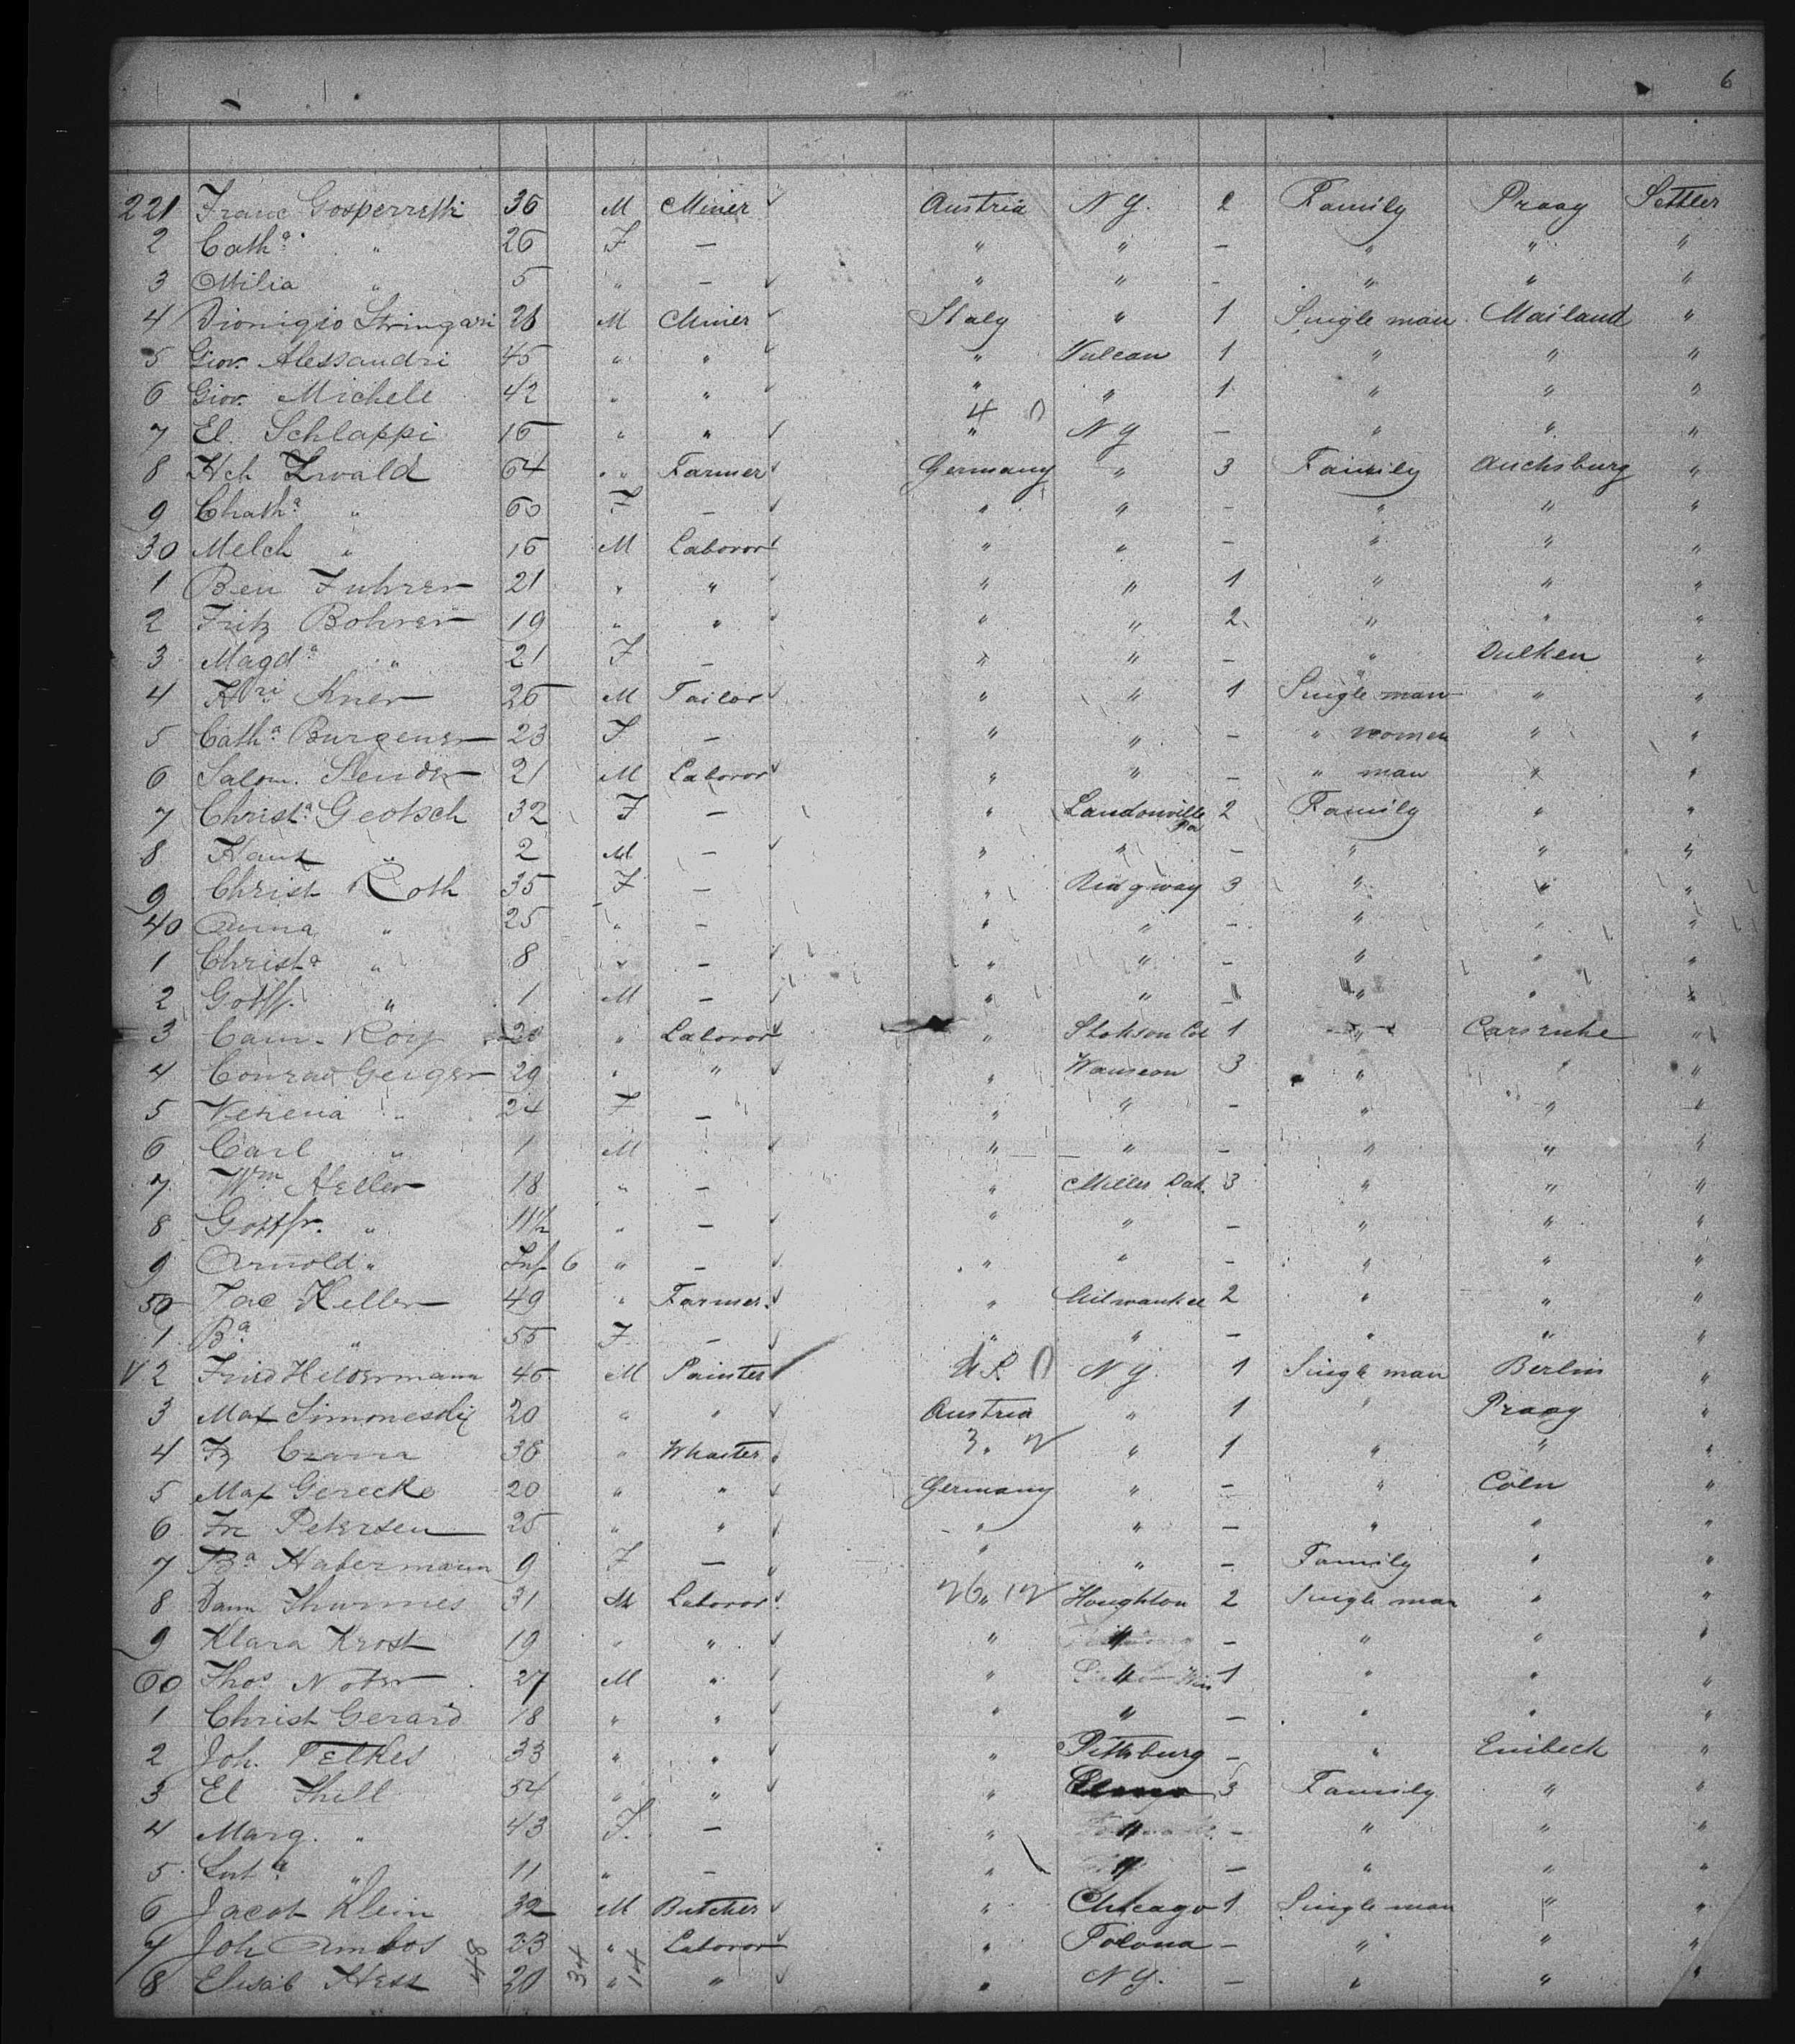 6
221 Franc Gosperretti 36 M Miner Austria N Y. 2 Family Praag Settler
2 Cath.a " 26 F — " " — " " "
3 Otilia " 5 " — " " - " " "
4 Dionigio Stringari 26 M Miner Italy " 1 Single man Mailand "
5 Giov. Alessandri 45 " " " Vulcan 1 " " "
6 Giov. Michele 42 " " " " 1 " " "
4
7 El. Schlappi 16 " " " N Y — " " "
8 Hch Zwald 64 " Farmer Germany " 3 Family Auchsburg "
9 Chath.a " 60 F — " " - " " "
30 Melch " 16 M Laboror " " - " " "
1 Ben Fuhrer 21 " " " " 1 " " "
2 Fritz Bohrer 19 " " " " 2 " " "
3 Magd.a " 21 F — " " — " Dulken "
4 Kner 26 M Tailor " " 1 Single man " "
5 Cath.a Burgener 23 F — " " — " women " "
6 Salom. 21 M Laboror " " — " man " "
7 Christ.a Geotsch 32 F — " Landonville Pa 2 Family " "
8 Hans " 2 M — " " — " " "
9 Christ Roth 35 F — " Ridgway 3 " " "
40 Anna " 25 " — " " - " " "
1 Christ.a " 8 " — " " — " " "
2 Gottf. " 1 M — " " — " " "
3 20 " Laboror " 1 " Carsruhe "
4 Conrad Geiger 29 " " " Wauseon 3 " " "
5 Verena " 24 F — " " — " " "
6 Carl " 1 M " " — " " "
7 Wm Heller 18 " — " Miller Dak. 3 " " "
8 Gottfr. " 11½ " — " " — " " "
9 Arnold " Inf 6 " — " " — " " "
50 Jac Keller 49 " Farmer " Milwaukee 2 " " "
1 B.a " 55 F — " " — " " "
2 Heldermann 46 M Painter N Y. 1 Single man Berlin "
3 Max 20 " " Austria " 1 " Praag "
4 Fz 38 " Whaiter 3 " 1 " " "
5 Max Gerecke 20 " " Germany " — " Cöln "
6 Fr Petersen 25 " " " " — " " "
7 B.a Habermann 9 F — " " — Family " "
8 Dam Thurmes 31 M Laboror " Houghton 2 Single man " "
9 Klara Krost 19 " " " " — " " "
60 Thos 27 M " " " 1 " " "
1 Christ Gerard 18 " " " " — " " "
2 Joh. Petkes 33 " " " Pittsburg — " Einbeck "
3 El Thill 54 " " " 3 Family " "
4 Marg. " 43 F. — " " — " " "
5 " 11 " — " " — " " "
6 Jacob Klein 32 M Butcher " Chicago 1 Single man " "
7 Joh Ambos 23 " Laboror " — " " "
8 Elisab Hess 20 " " " N Y. — " " "
48 34 14